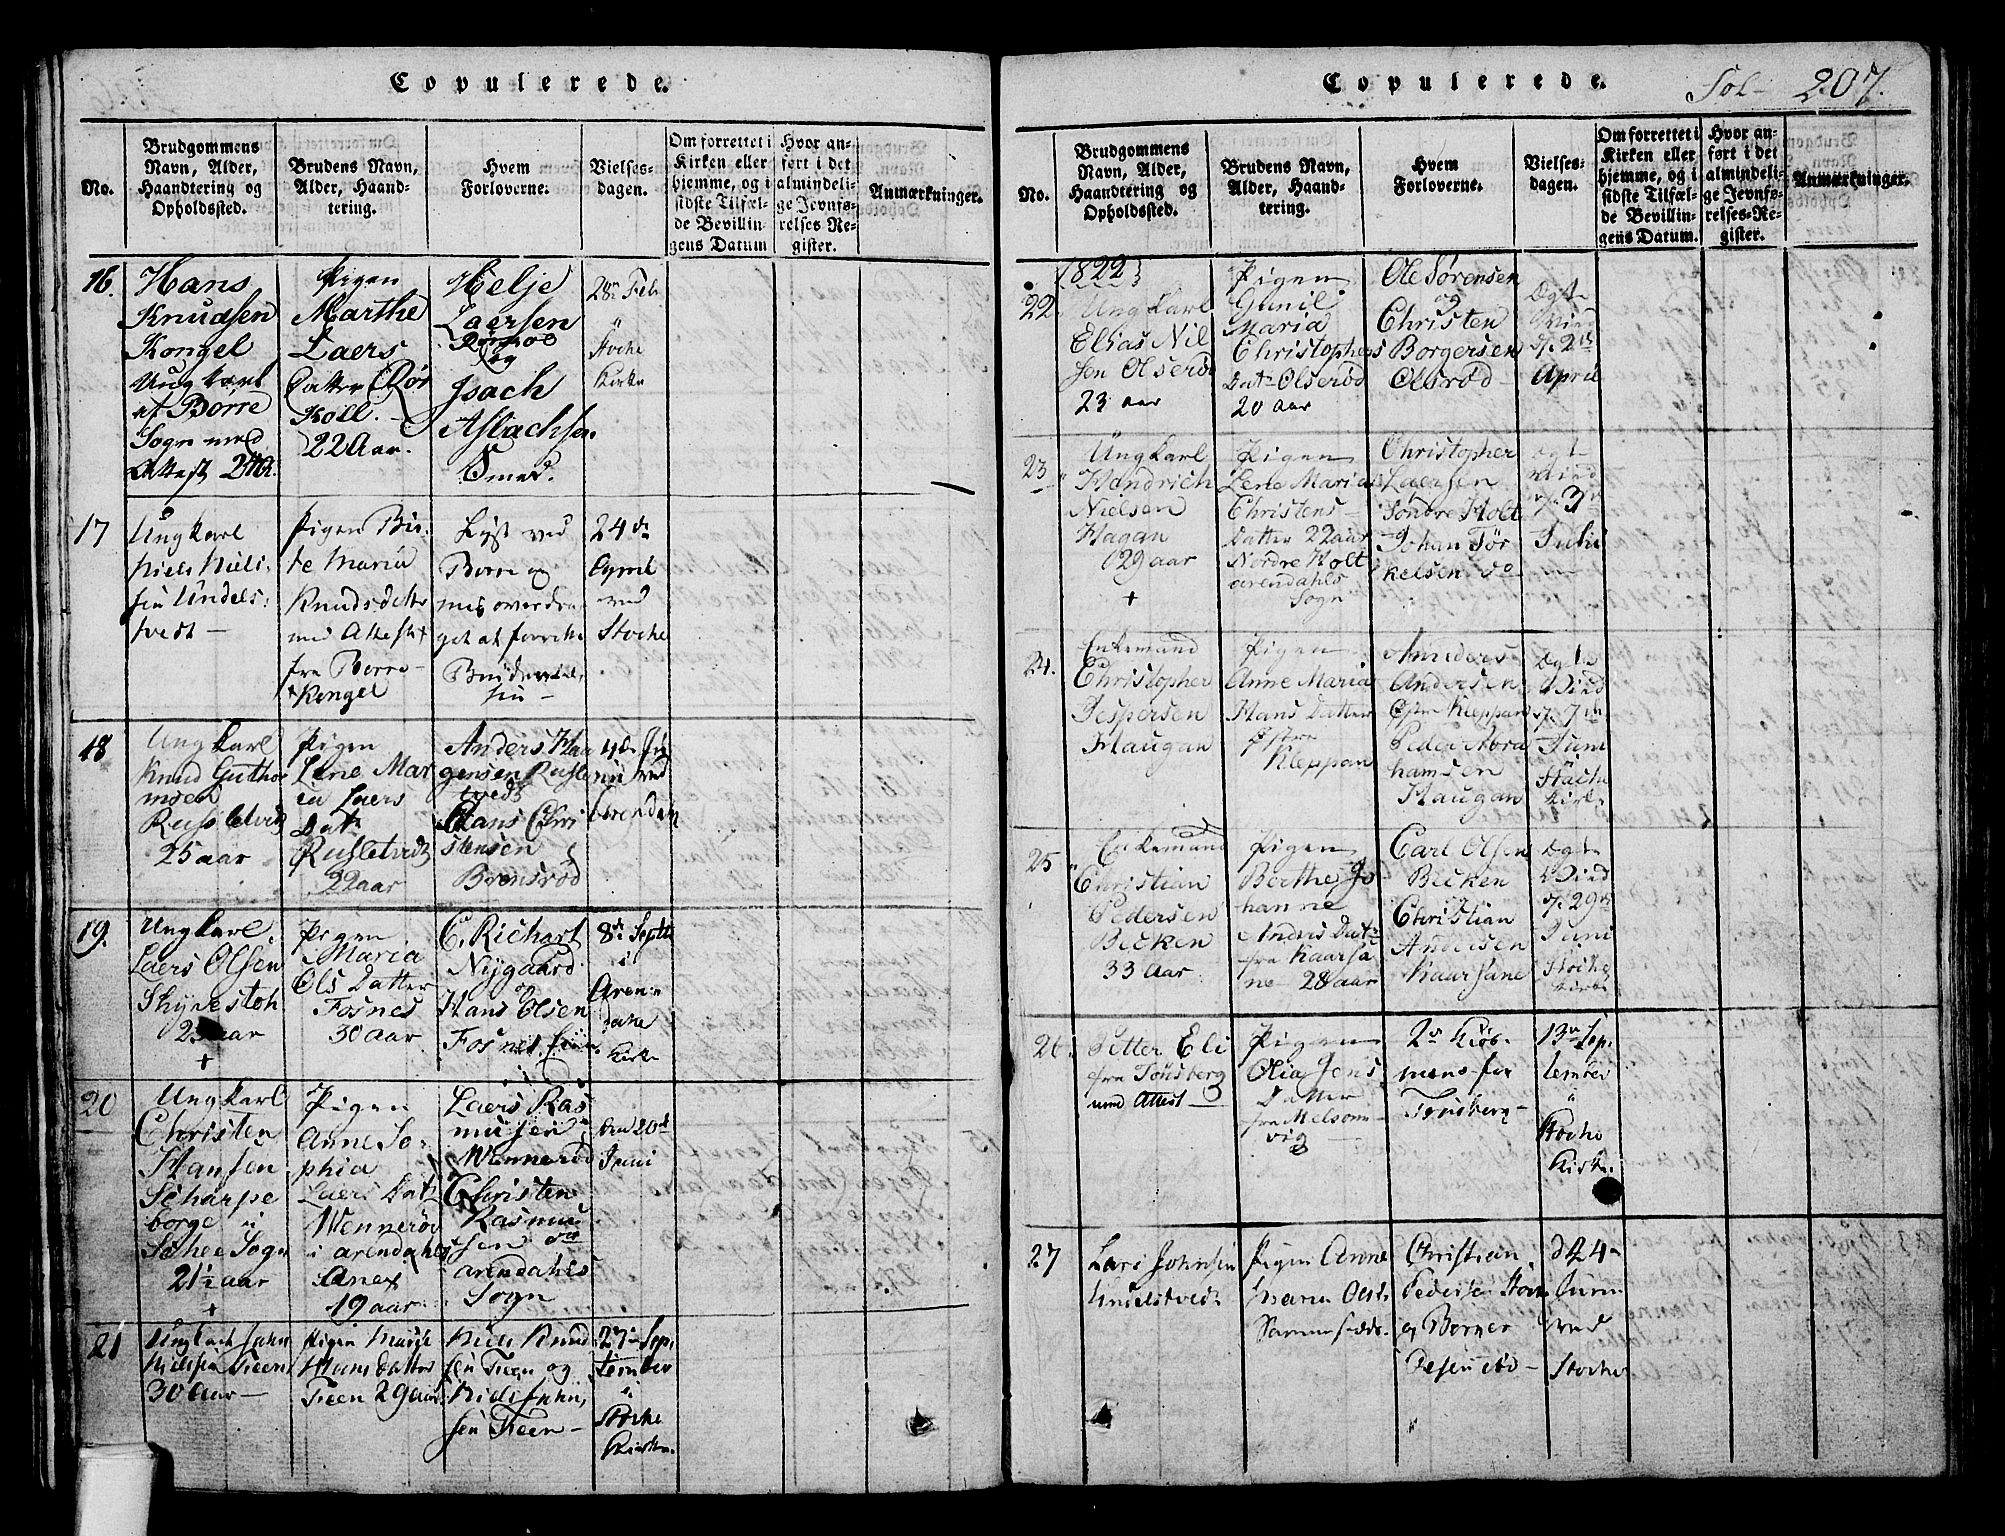 Copulerede.
No.
Brudgommens
Navn, Alder,
Haandtering og
Opholdssted.
Brudens Navn,
Alder, Haand-
tering.
Hvem
Forloverne.
Vielses-
dagen.
Om forrettet i
Kirken eller
hjemme, og i
sidste Tilfæl-
de Bevillin-
gens Datum
Hvor an-
ført i det
almindeli-
ge Jevnfø-
relses-Re-
gister.
Anmærkninger.
16.
Hans
Knudsen
Kongel
Ungkarl
af Borre
Sogn med
Attest
Pigen
Marthe
Laers
Datter Rør
Koll.
22 Aar.
Helje
Laersen
og
Jsach
Aslachsen
Smed.
28de Feb
Stocke
Kirke
17
Ungkarl
Niels Niel-
sen Undels-
tvedt
Pigen Bir-
te Maria
Knudsdatter
med Attest
fra Borre
Kongel
Lyst ved
Borre og
24de
April
ved
Stocke
18
Ungkarl
Knud Guthor
msen
Rusletvedt
25 aar
Pigen
Lene Mar
ia Laers
Datr
Rusletvedt
22 aar
Anders Haa
gensen Rusle
tvedt
Hans Chri
stensen
Bronsrød
4de Ju
ni ved
Arendal
19.
Ungkarl
Laers Olsen
Skjnestoh
aar
+
Pigen
Maria
Ols Datter
Fosnes
30 Aar
C. Richart
Nijgaard
og
Hans Olsen
Fosnes
8de Septb
i
Aren-
dahe
Kirke
20
Ungkarl
Christen
Hansen
Scharpe
borge i
Schee Sogn
21½ aar
+
Pigen
Anne So-
phia
Laers Datr
Wennerød
i arendahls
Anex
19 aar
Laers Ras
musen
Wennerød
Christen
Rasmu
sen do
arendahls
Sogn
den 20de
Juni
21
Ungkarl John
Nielsen Feen
30 Aar
Pigen
Hansdatter
Feen 29 aar
Niels Knud
sen Feen og
Niels John-
sen Feen
27de Sep-
tember
i
Stocke
Kirke
Copulerede.
Fol 207.
No.
Brudgommens
Navn, Alder,
Haandtering og
Opholdssted.
Brudens Navn,
Alder, Haand-
tering.
Hvem
Forloverne.
Vielses-
dagen.
Om forrettet i
Kirken eller
hjemme, og i
sidste Tilfæl-
de Bevillin-
gens Datum.
Hvor an-
ført i det
almindeli-
ge Jevnfø-
relses-Re-
gister.
Anmærkninger.
1822
22
Ungkarl
Elias Nil
sen Olserød
23 aar
Pigen
Gunil
Maria
Christophers
Datr Olserød
20 aar
Ole Sørensen
og
Christen
Borgersen
Olsrød
Ægte
Vied
d. 2de
April
23
Ungkarl
Handrich
Nielsen
Hagan
29 aar
+
Pigen
Lene Maria
Christens
Datter 22 aar
Nordre Holt
arendahls
Sogn
Christopher
Laersen
Søndre Holt
Johan Tør
kelsen do
Ægt
Vied
d. 3
Julii
24.
Enkemand
Christopher
Jespersen
Haugan
Pigen
Anne Maria
Hans Datter
Østre
Kleppan
Anders
Andersen
Østre Kleppan
Peder Abra
hamsen
Haugan
Ægte
Vied
d. 7de
Juni
Stocke
Kirke
25
Enkemand
Christian
Pedersen
Becken
33 Aar
Pigen
Berthe Jo
hanne
Andrs Datr
fra Kaarsa
ne 28 aar
Carl Olsen
Becken
Christian
Andersen
Kaarsane
Ægte
Vied
d. 29de
Juni
Stocke
Kirke
26.
Petter Eli
fra Tønsberg
med Attest
Pigen
Olia Jens
Datter
fra Melsom
vig
2de Kiøb-
mens fra
Tønsberg
13de Sep-
tember
Stocke
Kirke
27
Lars Johnsen
Undelstvedt
Pigen Anne
Maria Ols-
Christian
Pedersen
og Borger
24
Juni
ved
Stocke